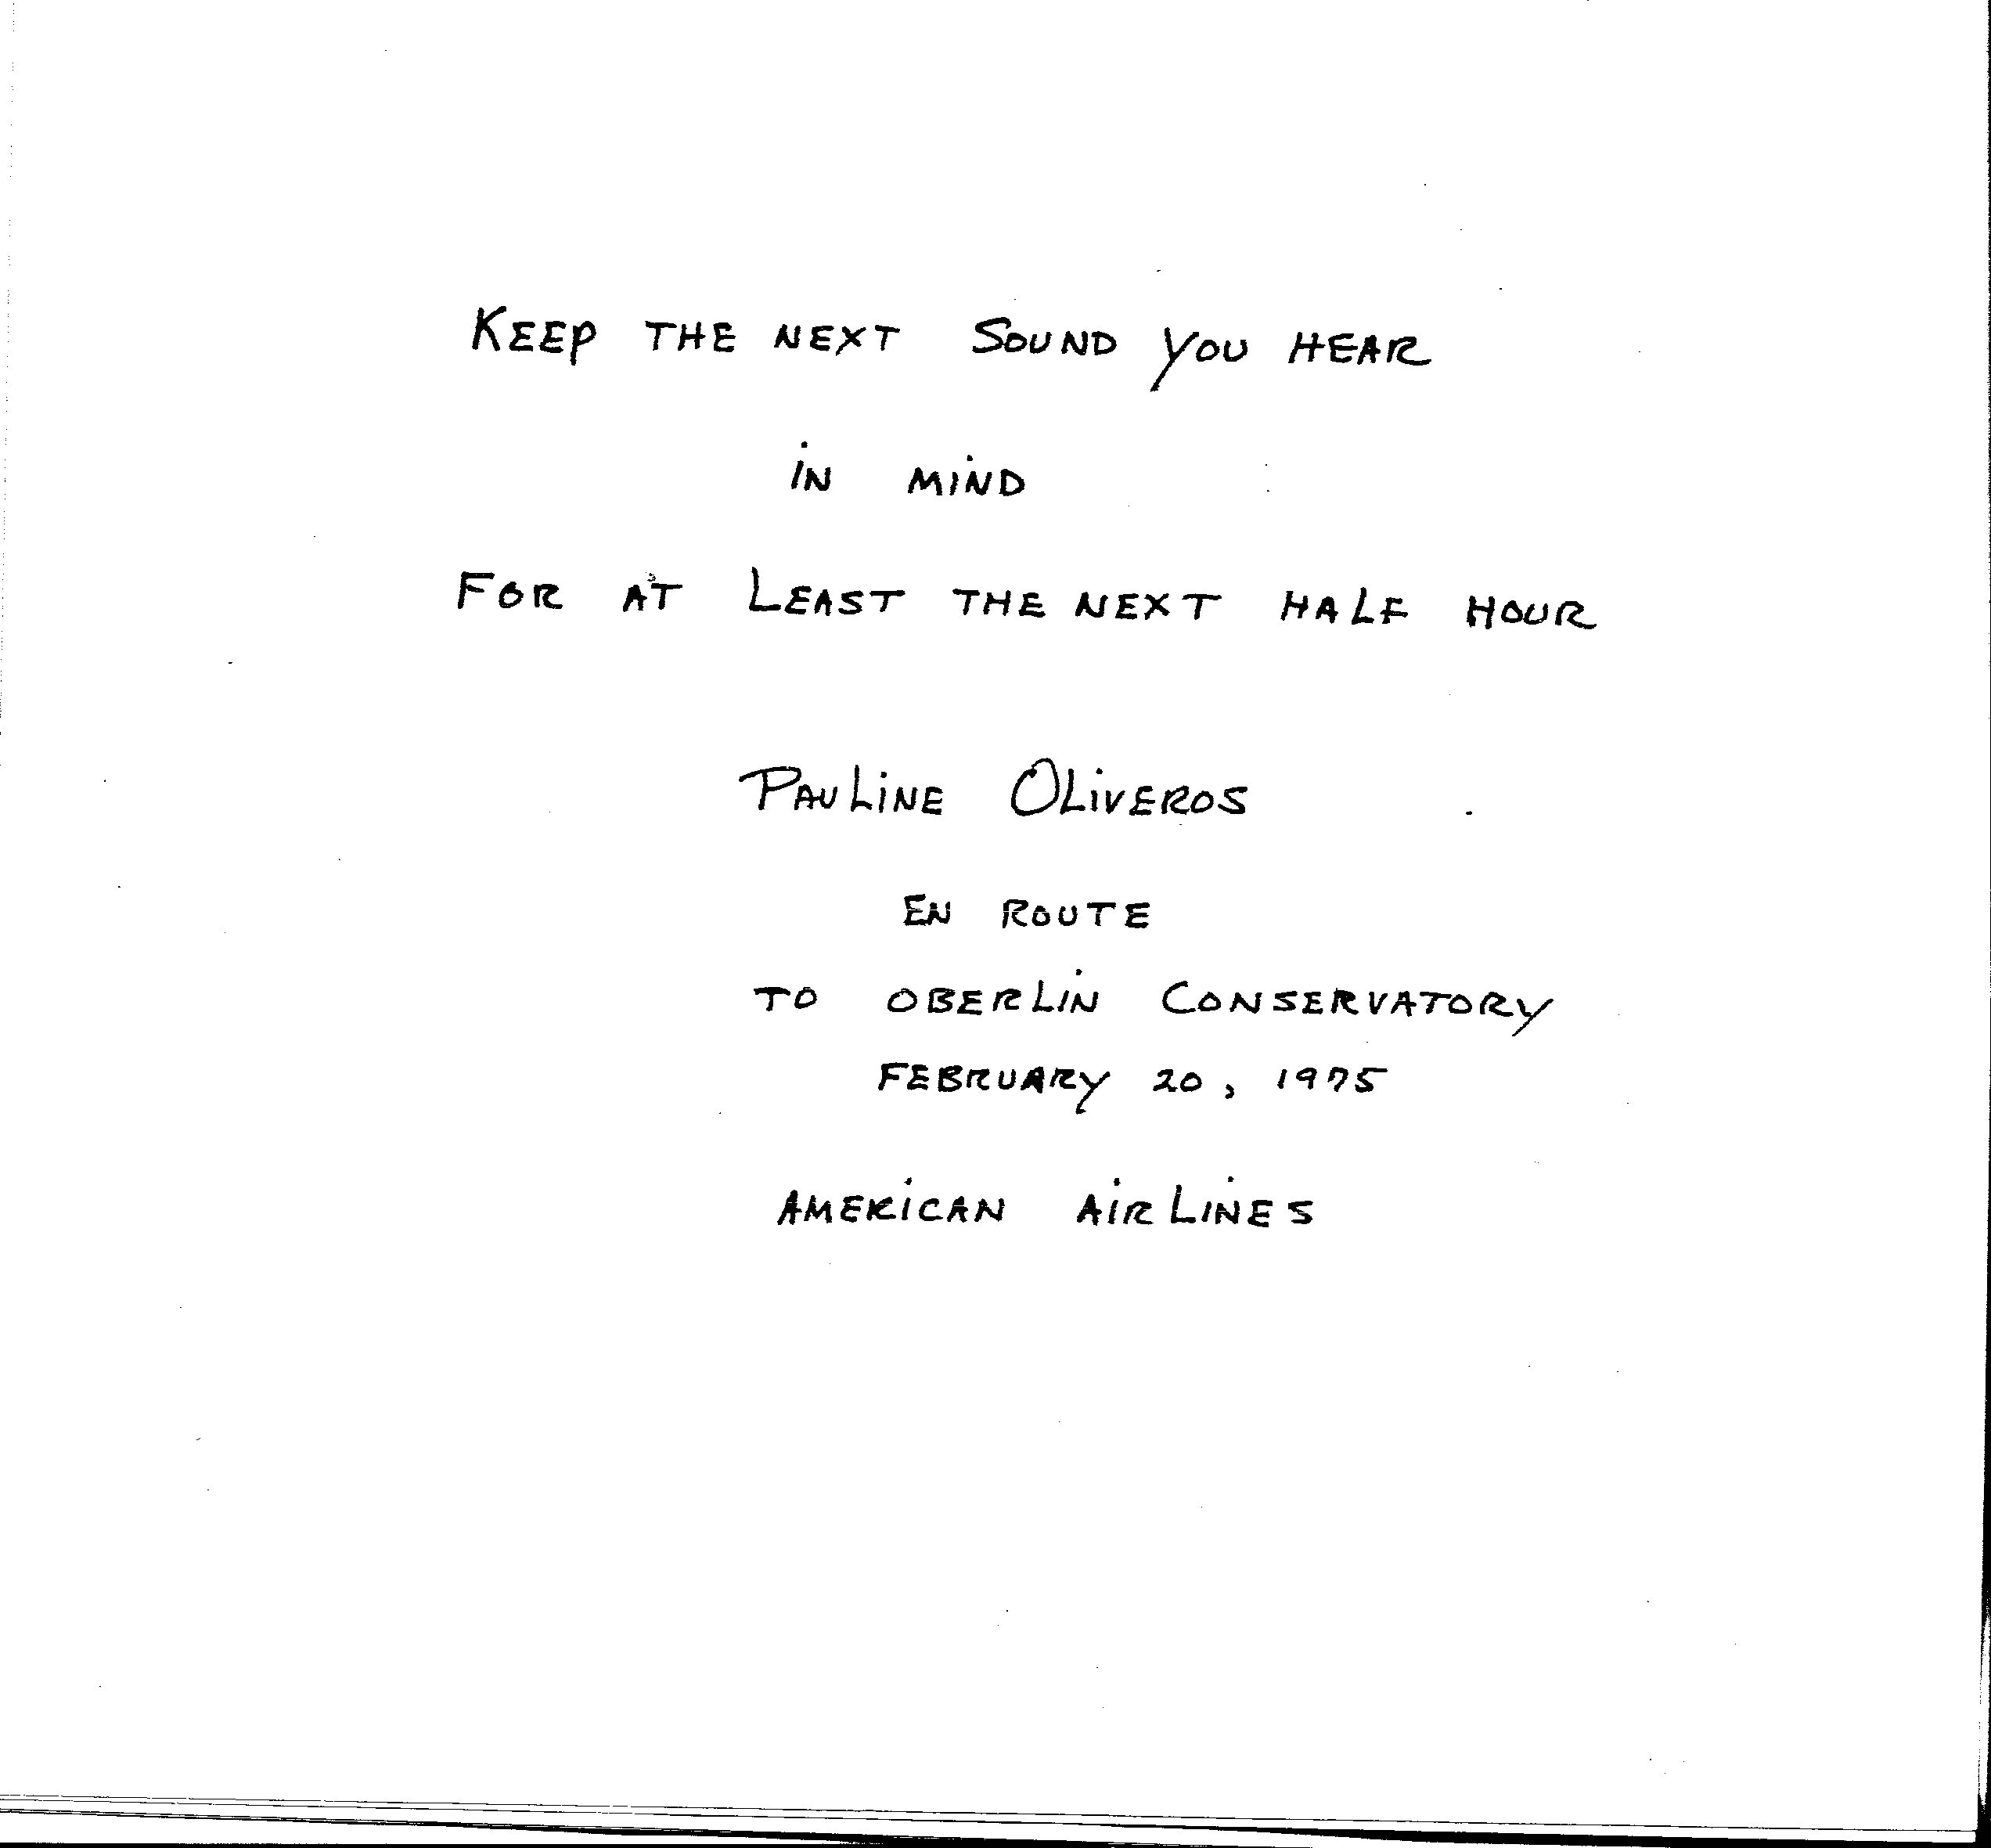 KEEP THE NEXT SOUND YOU HEAR
IN MIND
FOR AT LEAST THE NEXT HALF HOUR
PAULINE OLIVEROS
EN ROUTE
TO OBERLIN CONSERVATORY
FEBRUARY 20, 1975
AMERICAN AIRLINES